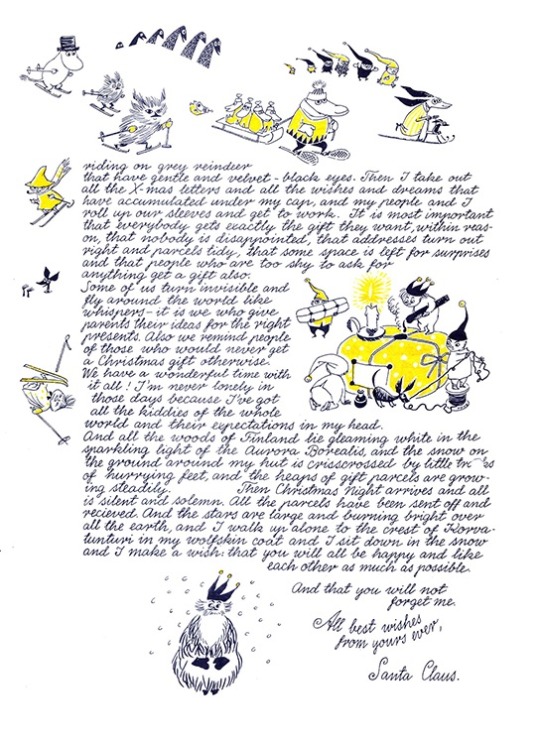 riding on grey reindeer
that have gentle and velvet - black eyes. Then I take out
all the X-mas letters and all the wishes and dreams that
have accumulated under my cap, and my people and I
roll up our sleeves and get to work. It is most important
that everybody gets exactly the gift they want, within reas-
on, that nobody is disappointed, that addresses turn out
right and parcels tidy, that some space is left for surprises
and that people who are too shy to ask for
anything get a gift also.
Some of us turn invisible and
fly around the world like
whispers - it is we who give
parents their ideas for the right
presents. Also we remind people
of those who would never get
a Christmas gift otherwise.
We have a wonderful time with
it all! I'm never lonely in
those days because I've got
all the kiddies of the whole
world and their expectations in my head.
And all the woods of Finland lie gleaming white in the
sparkling light of the Aurora Borealis, and the snow on
the ground around my hut is crisscrossed by little
of hurrying feet, and the heaps of gift parcels are grow-
ing steadily. Then Christmas Night arrives and all
is silent and solemn. All the parcels have been sent off and
recieved. And the stars are large and burning bright over
all the earth, and I walk up alone to the crest of Korva-
tunturi in my wolfskin coat and I sit down in the snow
and I make a wish: that you will all be happy and like
each other as much as possible.
And that you will not
forget me.
All best wishes
from yours ever,
Santa Claus.